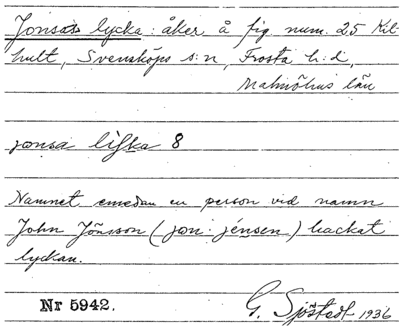 Jonsas lycka: åker å fig num. 25 Kil-
hult, Svensköps s:n, Frosta h:d,
Malmöhus län
jonsa lykka 8
Namnet emedan en person vid namn
John Jönsson (jon: jénsen) hackat
lyckan.
Nr 5942. G. Sjöstedt 1936